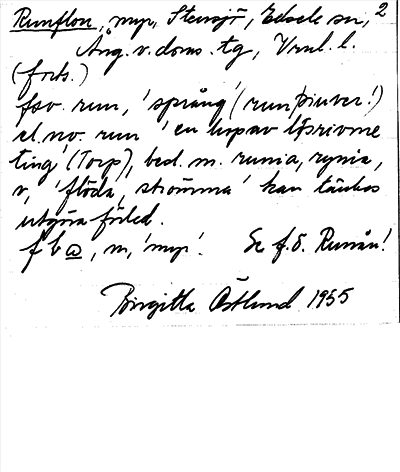 Runflon, myr, Stensjö, Edsele sn, 2
Ång. v. doms. tg, Vrnl. l.
(forts.)
fsv. run, 'språng' (run þiuver!)
el. no. run 'en hop av lösrivne
ting' (Torp), besl. m. runia, rynia,
v, 'flöda, strömma' kan tänkas
utgöra förled.
f b, m, 'myr'. Se f.ö. Runån!
Birgitta Östlund 1955